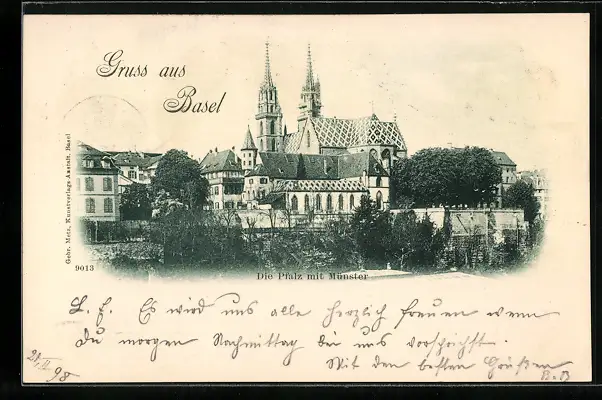 Gruss aus
Basel
Gebr. Metz, Kunstverlags-Anstalt, Basel
9013
Die Pfalz mit Münster
L. E. Es wird uns alle herzlich freuen wenn
Du morgen Nachmittag bei uns vorsprichst.
Mit den besten Grüßen
B. B
21.
98